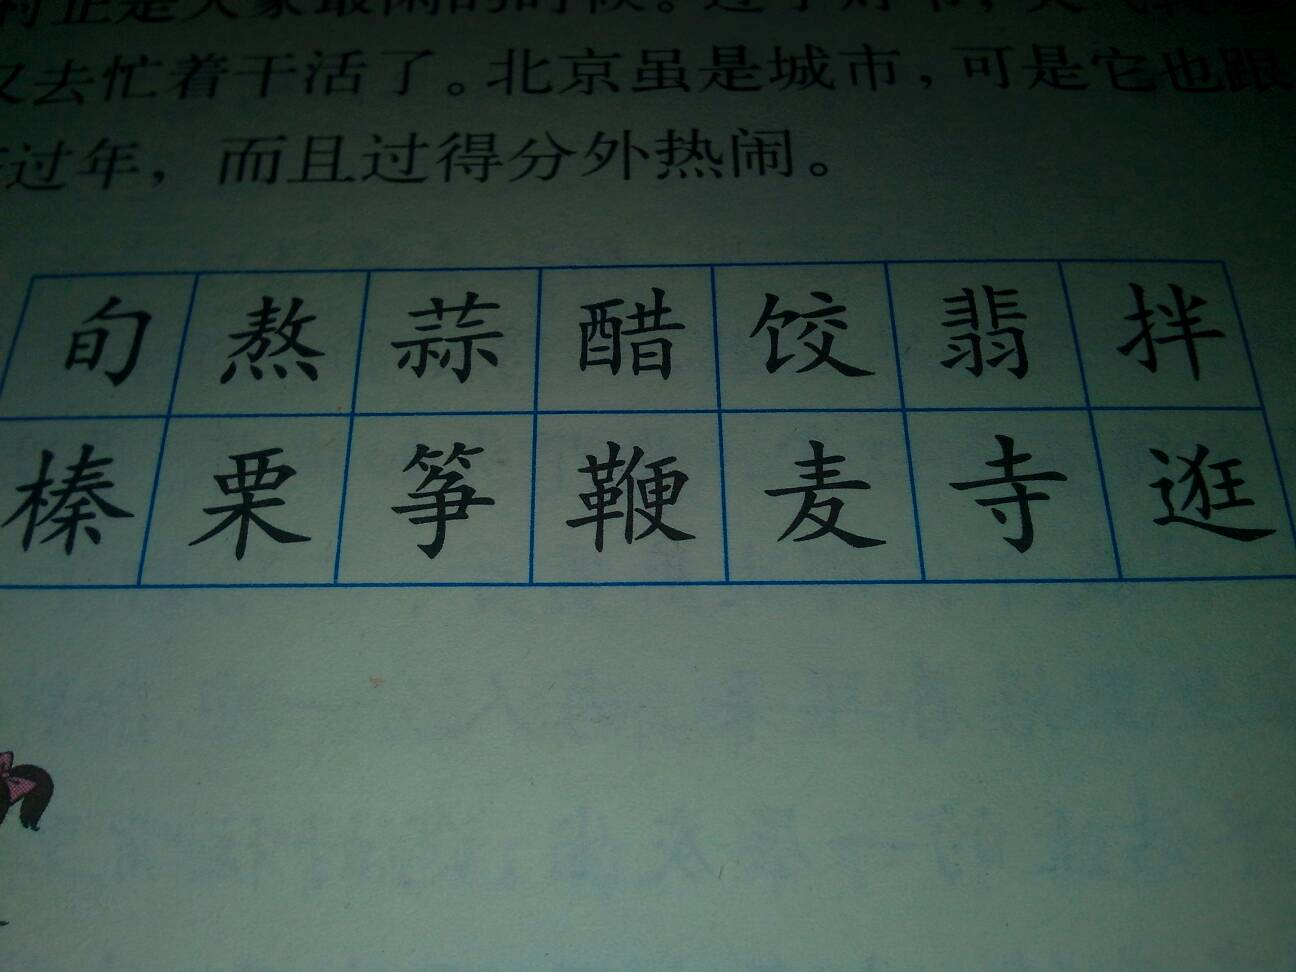 村正是大家最闲的时候。过了灯节，天气转暖
又去忙着干活了。北京虽是城市，可是它也跟
过年，而且过得分外热闹。
旬 熬 蒜 醋 饺 翡 拌
榛 栗 筝 鞭 麦 寺 逛